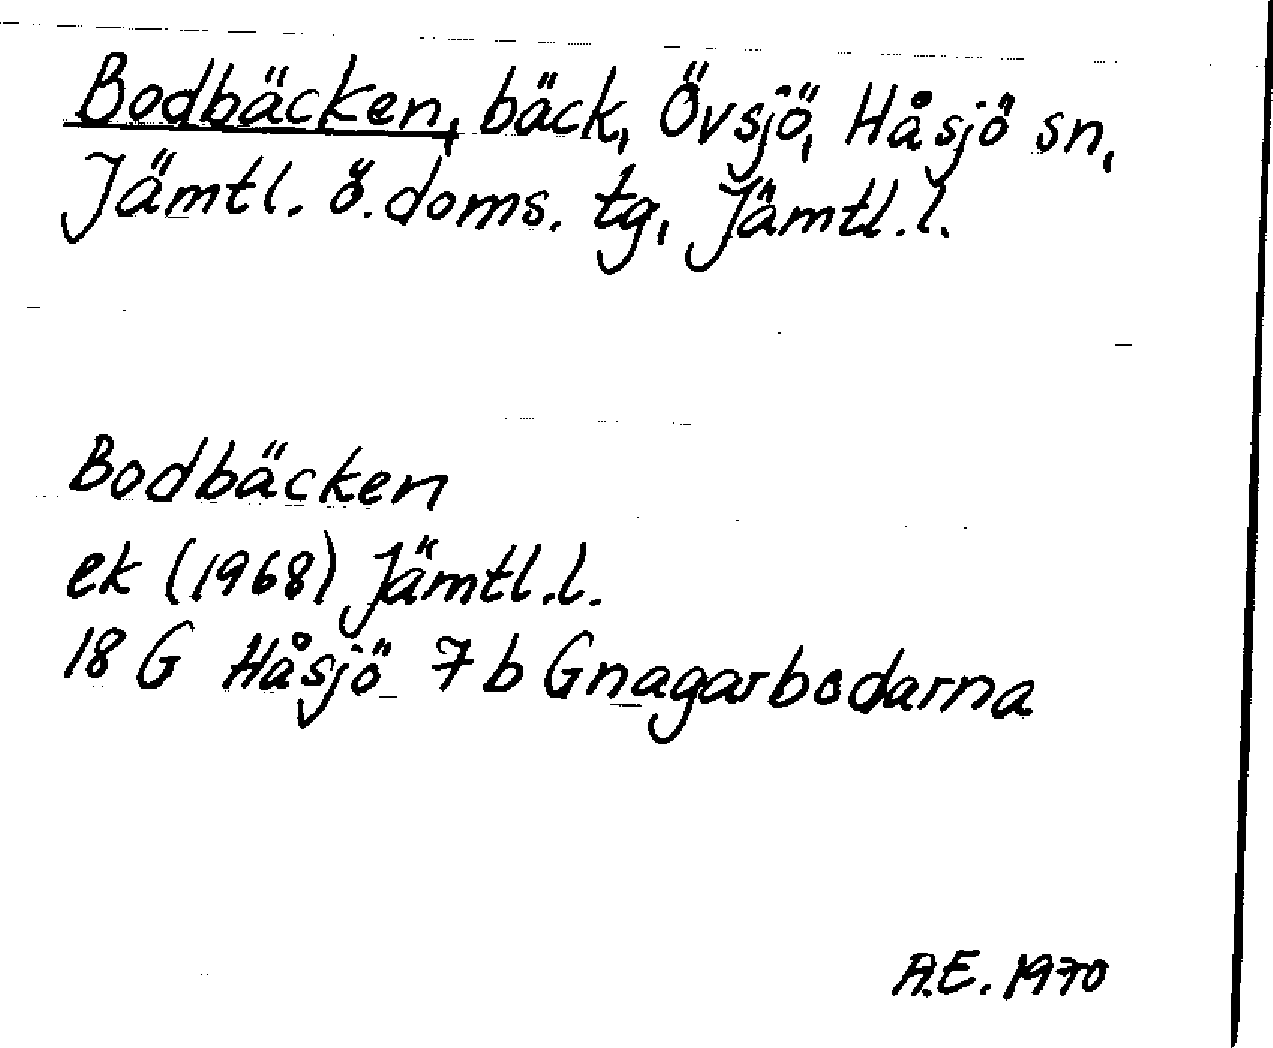 Bodbäcken, bäck, Övsjö, Håsjö sn,
Jämtl. ö. doms. tg, Jämtl. l.
Bodbäcken
ek (1968) Jämtl. l.
18 G Håsjö 7 b Gnagarbodarna
A.E. 1970